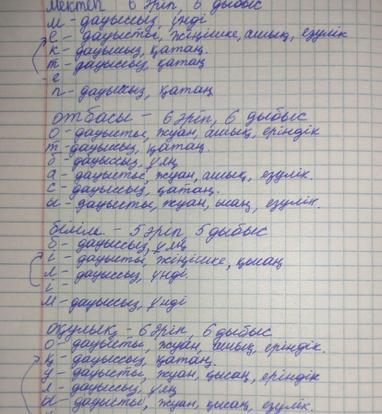 Мектеп 6 әріп, 6 дыбыс
м - дауыссыз, үнді
е - дауысты, жіңішке, ашық, езулік
к - дауыссыз, қатаң
т - дауыссыз қатаң
- е
п - дауыссыз, қатаң
отбасы - 6 әріп, 6 дыбыс
о - дауысты, жуан, ашық, еріндік
т - дауыссыз, қатаң.
б - дауыссыз, ұяң
а - дауысты, жуан, ашық, езулік.
с - дауыссыз, қатаң.
ы - дауысты, жуан, қысаң, езулік.
білім - 5 әріп, 5 дыбыс
б - дауыссыз, ұяң
і - дауысты, жіңішке, қысаң
л - дауыссыз, үнді.
і -
м - дауыссыз, үнді
оқулық - 6 әріп, 6 дыбыс
о - дауысты, жуан, ашық, еріндік.
қ - дауыссыз, қатаң.
у - дауысты, жуан, қысаң, еріндік
л - дауыссыз, ұяң
ы - дауысты, жуан, қысаң, езулік